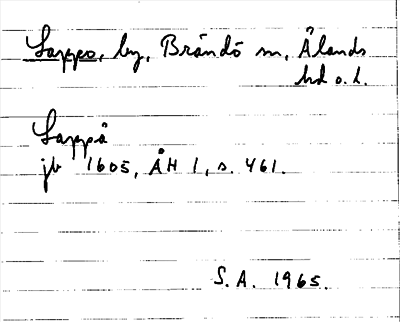 Lappo, by, Brändö sn, Ålands
hd o. l.
Lappå
jb 1605, ÅH 1, s. 461.
S.A. 1965.